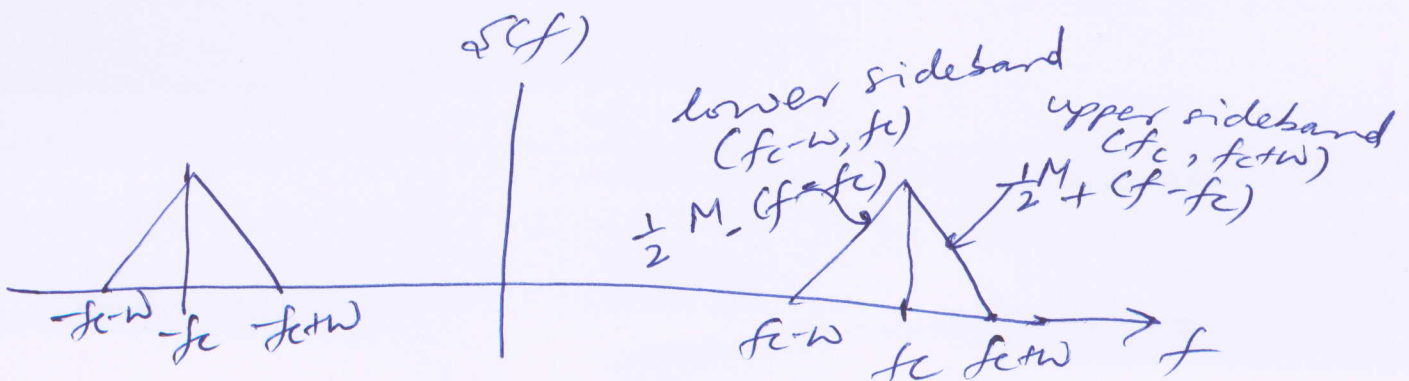 S(f)
lower sideband
(fc-w, fc)
1/2 M- (f-fc)
upper sideband
(fc, fc+w)
1/2 M+ (f-fc)
-fc-w
-fc
-fc+w
fc-w
fc
fc+w
f